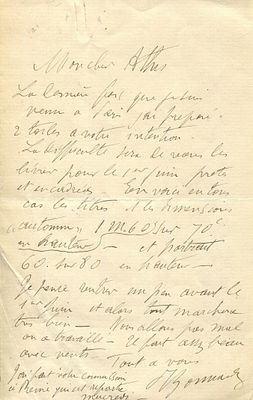 Mon cher Athis
La dernière fois que je suis
venu à Paris j'ai préparé
2 toiles à votre intention.
La difficulté sera de vous les
livrer pour le 1er juin prêtes
et encadrées En voici en tous
cas les titres et les dimensions
automne 1m60 sur 70c
en hauteur - et portrait
60 sur 80 en hauteur -
Je pense rentrer un peu avant le
1er juin et alors tout marchera
très bien - Vous allez pas mal
on a travaillé - Il fait assez beau
avec vents. Tout à vous
J'ai fait votre commission
à Bernié qui est reparti
mercredi - P Bonnard